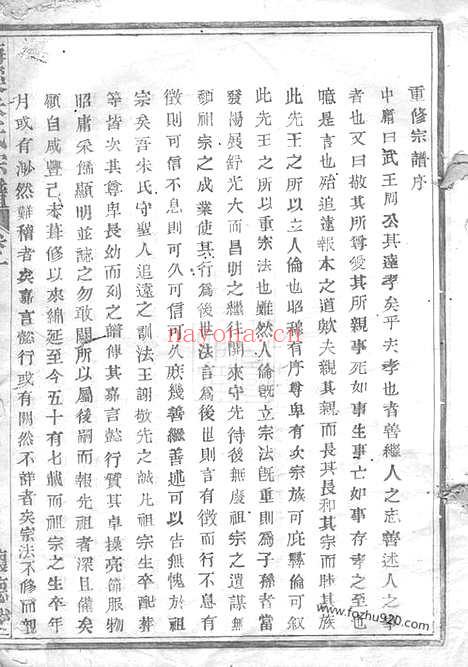 重修宗譜序
中庸曰武王周公其達孝矣乎夫孝也者善繼人之志善述人之事
者也又曰敬其所尊愛其所親事死如事生事亡如事存孝之至
噫是言也殆追遠報本之道歟夫親其親而長其長和其宗而睦其族
此先王之所以立人倫也昭穆有序尊卑有次宗族可庇彝倫可叙
此先王之所以重宗法也雖然人倫既立宗法既重則為子孫者當
發揚展舒光大而昌明之繼往開來守先待後無廢祖宗之遺謀無
祖宗之成業使其行為後世法言為後世則言有徵而行不息有
徵則可信不息則可久可信可久庶幾善繼善述可以告無愧於祖
宗矣吾朱氏守聖人追遠之訓法王謝敬先之誠凡祖宗生卒配葬
等皆次其尊卑長幼而列之譜傳其嘉言懿行質其卓操亮節服物
昭庸采儒顯明並誌之勿敢闕所以屬後嗣而報先祖者深且備矣
顧自咸豐己未葺修以來綿延至今五十有七載而祖宗之生卒年
月或有渺然難稽者矣嘉言懿行或有闕然不詳者矣宗法不修而親
nayona.cn
www.fozhu920.com